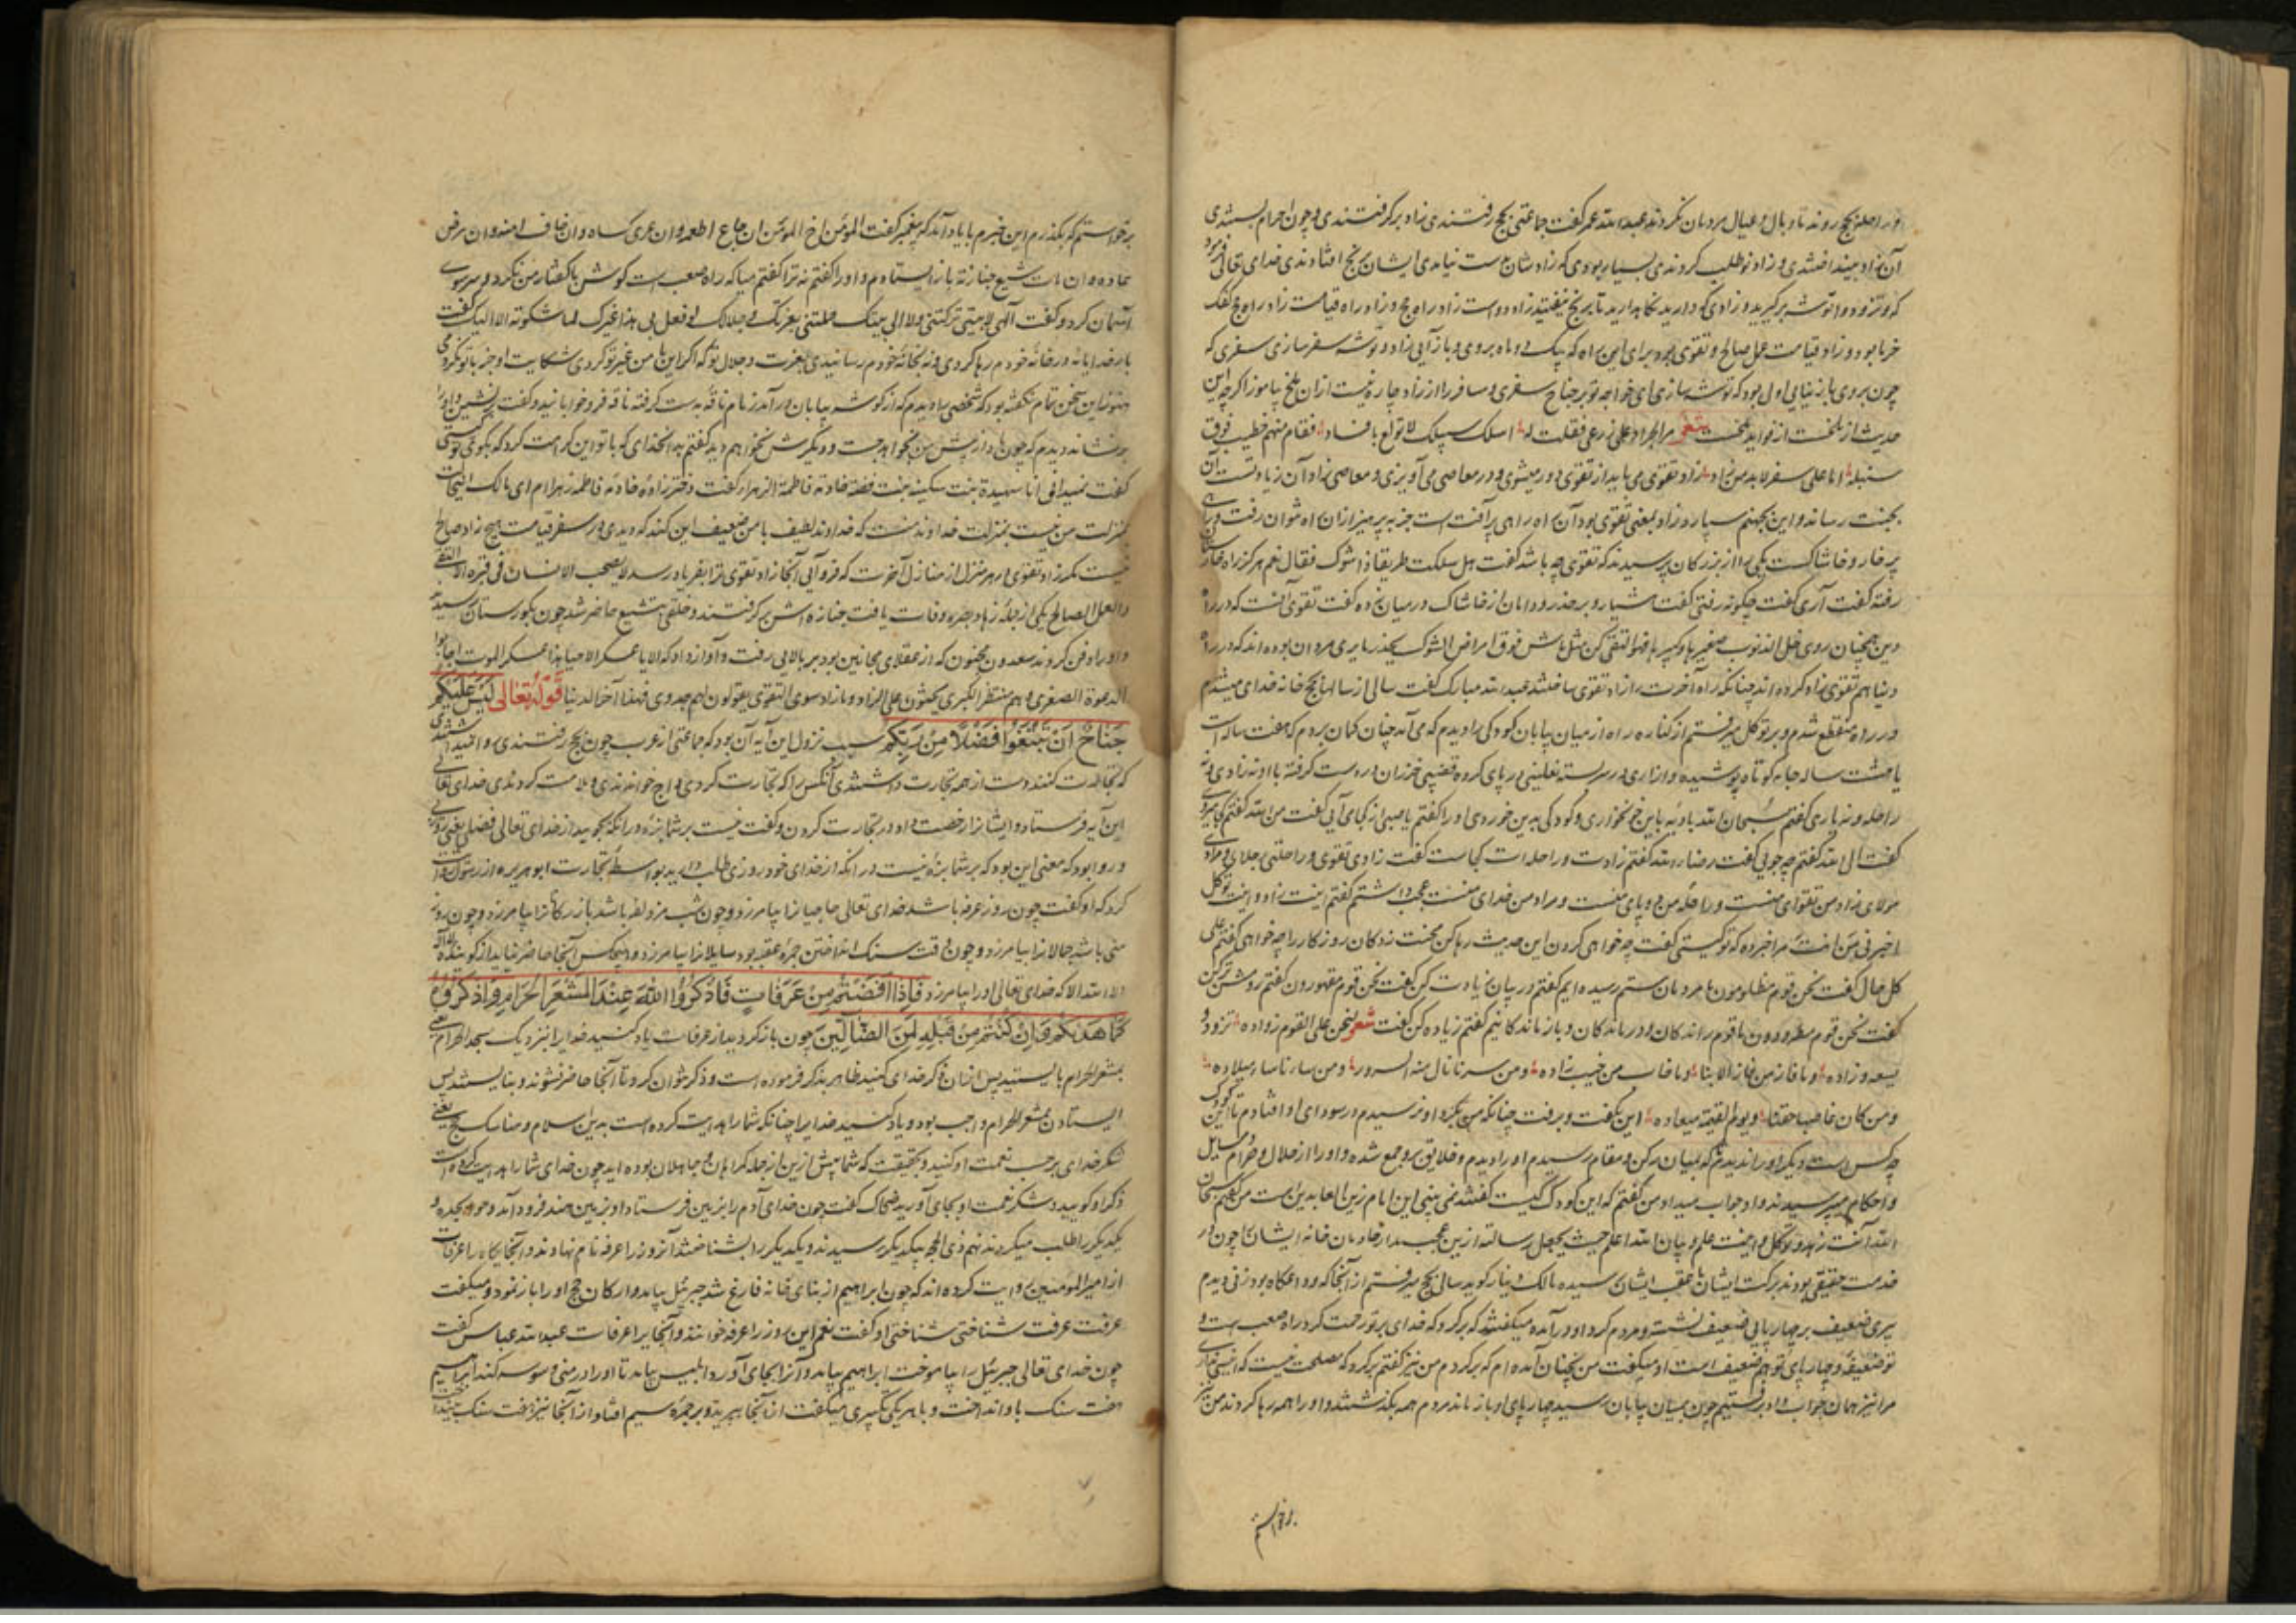 و راحله بحج روند تا وبال و عیال مردمان نکردند عبدالله عمر گفت جماعتی بحج رفتندی زاد برگرفتندی و چون احرام بستندی
آن زاد بینداختندی و زاد نو طلب کردندی بسیار بودی که زادشان بدست نیامدی ایشان برنج افتادندی خدای تعالی فرمود
که وتزودوا توشه برگیرید و زادی که دارید نگاهدارید تا برنج نیفتید زاد دو است زاد راه حج و زاد راه قیامت زاد راه حج کعک
خرما بود و زاد قیامت عمل صالح و تقوی بود برای این راه که بیک دو ماه بروی و باز آیی زاد و توشه سفر سازی سفری که
چون بروی باز نیایی اولی بود که توشه سازی ای خواجه تو بر جناح سفری و مسافر را از زاد چاره نیست از آن ملخ بیاموز اگرچه این
حدیث از ملخست از فواید ملخست شعر مر الجراد علی زرعی فقلت له اسلک سبیلک لا تولع بافساد فقام منهم خطیب فوق
سنبلة انا علی سفر لابد من زاد زاد تقوی می باید از تقوی دور میشوی و در معاصی می آویزی و معاصی زاد آن زیادتست آن
بجنت رساند و این بجهنم سپارد و زاد بمعنی تقوی بود آن راه راهی پر آفت است جز به پرهیز از آن راه نتوان رفت و راهی
پر خار و خاشاکست یکی را از بزرگان پرسیدند که تقوی چه باشد گفت هل سلکت طریقا ذا شوک فقال نعم هرگز راه خارستان
رفته گفت آری گفت چگونه رفتی گفت هشیار و بر حذر و دامان از خاشاک در میان زده گفت تقوی آنست که در راه
دین همچنان روی خل الذنوب صغیرها و کبیرها فهو التقی کن مثل ماش فوق ارض الشوک یحذر ما یری مردان بوده اند که در راه
دنیا هم تقوی زاد کرده اند چنانکه راه آخرت را زاد تقوی ساختند عبدالله مبارک گفت سالی از سالها بحج خانه خدای میشدم
در راه منقطع شدم و بر توکل میرفتم از کناره راه از میان بیابان کودکی را دیدم که می آمد چنان گمان بردم که هفت ساله است
یا هشت ساله جامه کوتاه پوشیده و ازاری در سر بسته نعلینی در پای کرده قضیبی خیزران در دست گرفته با او نه زادی و نه
راحله و نه یاری گفتم سبحان الله بادیه باین خونخواری و کودکی بدین خوردی او را گفتم یا صبی از کجا می آیی گفت من الله گفتم کجا میروی
گفت الی الله گفتم چه جویی گفت رضاء الله گفتم زادت و راحله ات کجاست گفت زادی تقوی و راحلتی رجلای و مرادی
مولای زاد من تقوای منست و راحله من دو پای منست و مراد من خدای منست عجب داشتم گفتم اینت زاد و اینت توکل
اخبرنی من انت مرا خبر ده که تو کیستی گفت چه خواهی کردن این حدیث رها کن محنت زدگان روزگار را چه خواهی گفتم علی
کل حال گفت نحن قوم مظلومون ما مردمان ستم رسیده ایم گفتم در بیان زیادت کن گفت نحن قوم مقهورون گفتم روشنتر کن
گفت نحن قوم مطرودون ما قوم راندگان و درماندگان و بازماندگانیم گفتم زیاده کن گفت شعر نحن علی القوم زواده تزود و
یسعد زاده و ما فاز من فاز الا بنا و ما خاب من حبنا زاده و من سرنا نال منا السرور و من سائنا ساء میلاده
و من کان غاصبا حقنا و یوم القیمة میعاده این بگفت و برفت چنانکه من بگرد او نرسیدم در سودای او افتادم تا این کودک
چه کس است دیگر او را ندیدم تا که بمیان رکن و مقام رسیدم او را دیدم و خلایق برو جمع شده و او را از حلال و حرام و مسایل
و احکام میپرسیدند و او جواب میداد من گفتم که این کودک کیست گفتند نمی بینی این امام زین العابدین است من گفتم سبحان
الله آنت زهد و توکل و اینت علم و بیان الله اعلم حیث یجعل رسالته ازین عجبتر خادمان خانه ایشان چون در
خدمت حقیقی بودند برکت ایشان با عقب ایشان رسیده مالک دینار گوید سالی بحج میرفتم از آنجا که وداعگاه بود زنی دیدم
پیری ضعیف بر چهارپایی ضعیف نشسته و مردم گرد او درآمده میگفتند که برگرد که خدای بر تو رحمت کرد راه صعب است و
تو ضعیفه و چهارپای تو هم ضعیف است او میگفت من نچنان آمده ام که برگردم من نیز گفتم برگرد که مصلحت نیست که
مرا نیز همان جواب داد برفتیم چون بمیان بیابان رسید چهارپای او باز ماند مردم همه بگذشتند و او را همه رها کردند من نیز
برخواستم
برخواستم که بگذرم این خبرم با یاد آمد که پیغمبر گفت المؤمن اخ المؤمن ان جاع اطعمه و ان عری کساه و ان خاف امنه و ان مرض
عاده و ان مات شیع جنازته باز ایستادم و او را گفتم نه ترا گفتم میا که راه صعب است گوش با گفتار من نکرد و سر سوی
آسمان کرد و گفت الهی لا بیتی ترکتنی و لا الی بیتک حملتنی بعزتک و جلالک لو فعل بی هذا غیرک لما شکوته الا الیک گفت
بار خدایا نه در خانه خودم رها کردی و نه بخانه خودم رسانیدی بعزت و جلال تو که اگر این با من غیر تو کردی شکایت او جز با تو نکردمی
هنوز این سخن تمام نگفته بود که شخصی را دیدم که از گوشه بیابان درآمد زمام ناقه بدست گرفته ناقه فرو خوابانید و گفت برنشین و او را
برنشاند دیدم که چون باد از پیش من بخواهد جست و دیگرش نخواهم دید گفتم بدان خدای که با تو این کرامت کرد که بگو تو کیستی
گفت انا شهیدة بنت سکینه بنت فضه خادمة فاطمة الزهراء گفت دختر زاده خادمه فاطمه زهراام ای مالک این نجات
بمنزلت من نیست بمنزلت خداوندنست که خداوند لطیف با من ضعیف این کند که دیدی در سفر قیامت هیچ زاد صالح
نیست مگر زاد تقوی در هر منزل از منازل آخرت که فرو آیی آنجا زاد تقوی ترا بفریاد رسد لا یصحب الانسان فی قبره الا التقی
والعمل الصالح یکی از جمله زهاد بصره وفات یافت جنازه اش برگرفتند و خلقی بتشییع حاضر شد چون بگورستان رسیدند
و او را دفن کردند سعدون مجنون که از عقلای مجانین بود بر بالایی رفت و آواز داد که الا یا عسکر الاحیا هذا عسکر الموت اجابوا
الدعوة الصغری و هم منتظر الکبری یحثون علی الزاد و ما زاد سوی التقوی یقولون لهم جدوی فهذا آخر الدنیا قوله تعالی لیس علیکم
جناح ان تبتغوا فضلا من ربکم سبب نزول این آیه آن بود که جماعتی از عرب چون بحج رفتندی
که تجارت کنند دست از همه تجارت داشتندی آنکس را که تجارت کردی داج خواندندی و ملامت کردندی خدای تعالی
این آیه فرستاد و ایشانرا رخصت داد در تجارت کردن و گفت نیست بر شما بزه در آنکه بجویید از خدای تعالی فضلی یعنی روزی
و روا بود که معنی این بود که بر شما بزه نیست در آنکه از خدای خود روزی طلب دارید بواسطه تجارت ابوهریره از رسول روایت
کرد که او گفت چون روز عرفه باشد خدای تعالی حاجیانرا بیامرزد و چون شب مزدلفه باشد بازرگانانرا بیامرزد و چون روز
منی باشد حمالانرا بیامرزد و چون وقت سنگ انداختن جمره عقبه بود سایلانرا بیامرزد و هیچکس آنجا حاضر نیاید از گوینده لا اله
الا الله الا که خدای تعالی او را بیامرزد فاذا افضتم من عرفات فاذکروا الله عند المشعر الحرام واذکروه
کما هدیکم و ان کنتم من قبله لمن الضالین چون بازگردید از عرفات یاد کنید خدایرا بنزدیک مسجد الحرام یعنی
بمشعر الحرام بایستید پس از آن ذکر خدای کنید ظاهر بذکر فرموده است و ذکر نتوان کرد تا آنجا حاضر نشوند و بنایستند پس
ایستادن بمشعر الحرام واجب بود و یاد کنید خدایرا چنانکه شما را هدایت کرده است بدین اسلام و مناسک حج یعنی
شکر خدای بر حسب نعمت او کنید و بحقیقت که شما پیش ازین از جمله گمراهان و جاهلان بوده اید چون خدای شما را هدایت کرده است
ذکر او گویید و شکر نعمت او بجای آورید ضحاک گفت چون خدای آدم را بزمین فرستاد او بزمین هند فرود آمد و حوا بجده و
یکدیگر را طلب میکردند نهم ذی الحجه بیکدیگر رسیدند و یکدیگر را بشناختند آنروز را عرفه نام نهادند و آنجایگاه را عرفات
از امیرالمؤمنین روایت کرده اند که چون ابراهیم از بنای خانه فارغ شد جبرئیل بیامد و ارکان حج او را باز نمود و میگفت
عرفت عرفت شناختی شناختی او گفت نعم این روز را عرفه خواند و آنجا را عرفات عبدالله عباس گفت
چون خدای تعالی جبرئیل را بیاموخت ابراهیم بیامد و آنرا بجای آورد ابلیس بیامد تا او را در منی وسوسه کند ابراهیم
هفت سنگ باو انداخت و با هر یکی تکبیری میگفت از آنجا بپرید و بر جمره سیم افتاد از آنجا نیز هفت سنگ بینداخت